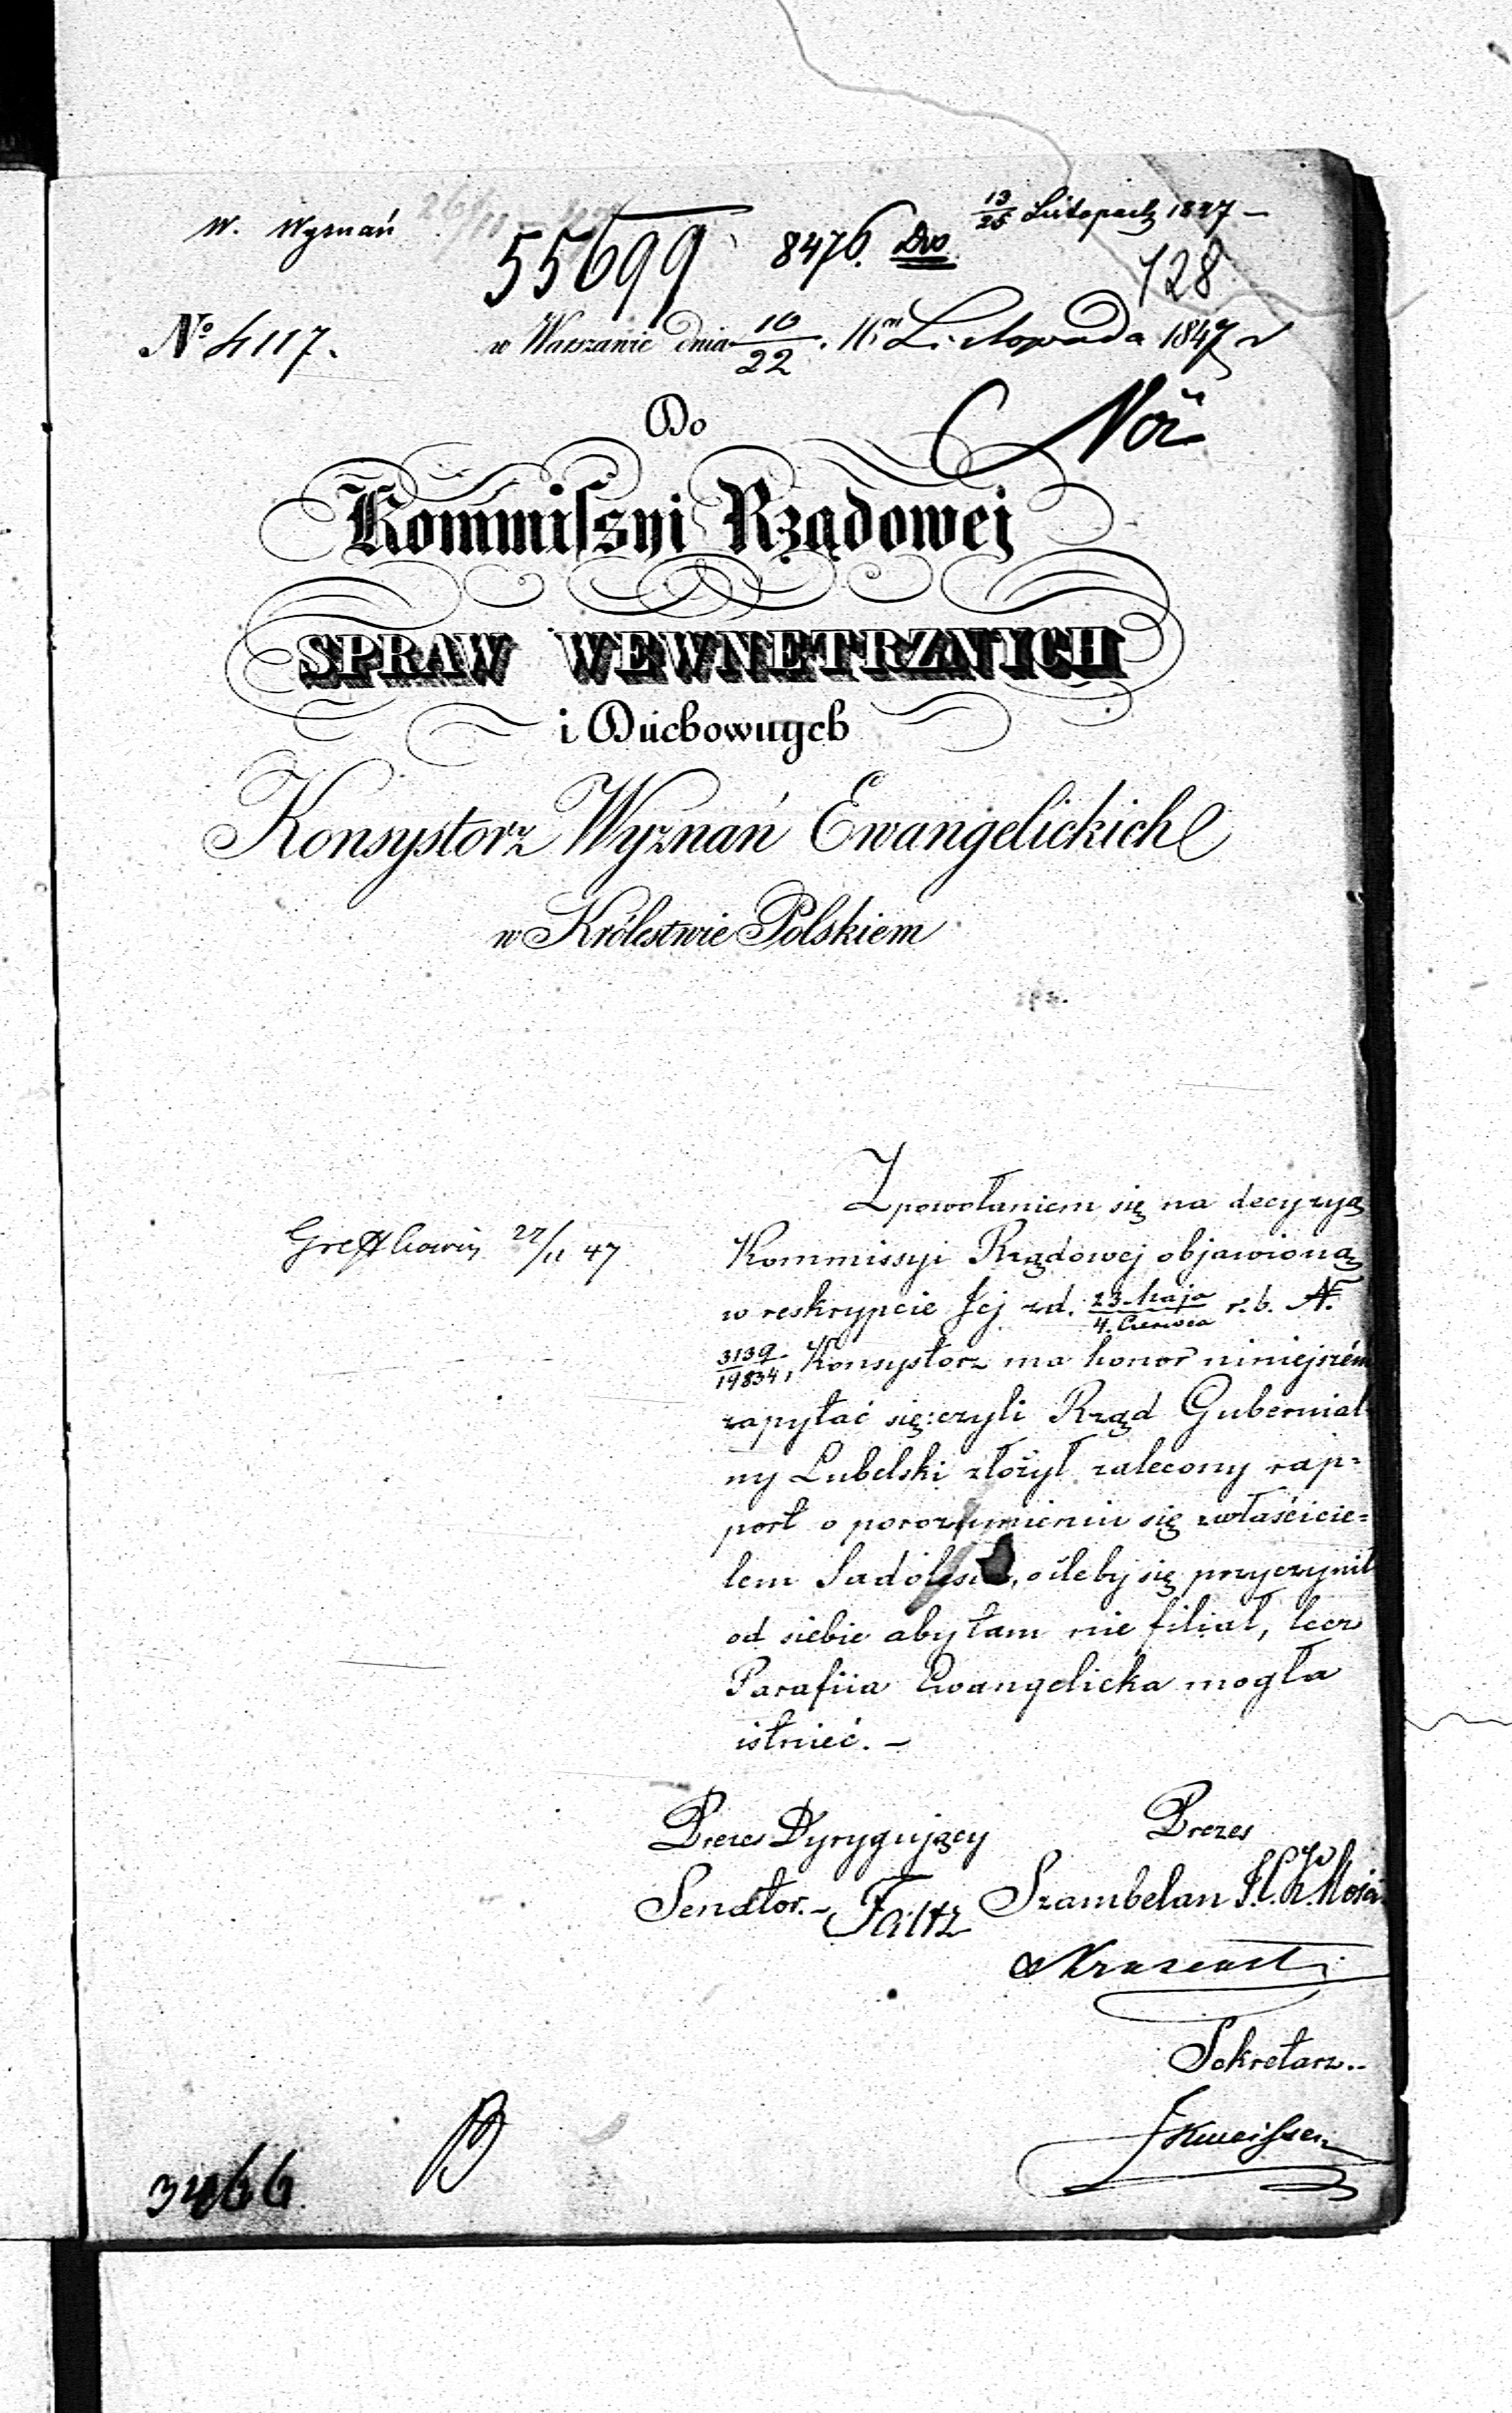 W. Wyznań
55699
8476. Dws
13/25 Listopada 1847 -
128
№ 4117.
w Warszawie dnia 10/22. Listopada 1847 r
Do
Kommissyi Rządowej
SPRAW WEWNĘTRZNYCH
i Duchownych
Konsystorz Wyznań Ewangelickich
w Królestwie Polskiem
Z powołaniem się na decyzyą
Kommissyi Rządowej objawioną
w reskrypcie Jej z d. 23. Maja/4. Czerwca r. b. №
3139/14834, Konsystorz ma honor niniejszém
zapytać się: czyli Rząd Gubernial
ny Lubelski złożył zalecony rap=
port o porozumieniu się z właścicie=
lem Sadolesia, o ileby się przyczynił
od siebie aby tam nie filiał, lecz
Parafiia Ewangelicka mogła
istnieć. -
22/11 47
Prezes Dyrygujący
Senator. -
Prezes
Szambelan J. C. K. Mości
Krasiński
Sekretarz..
3466